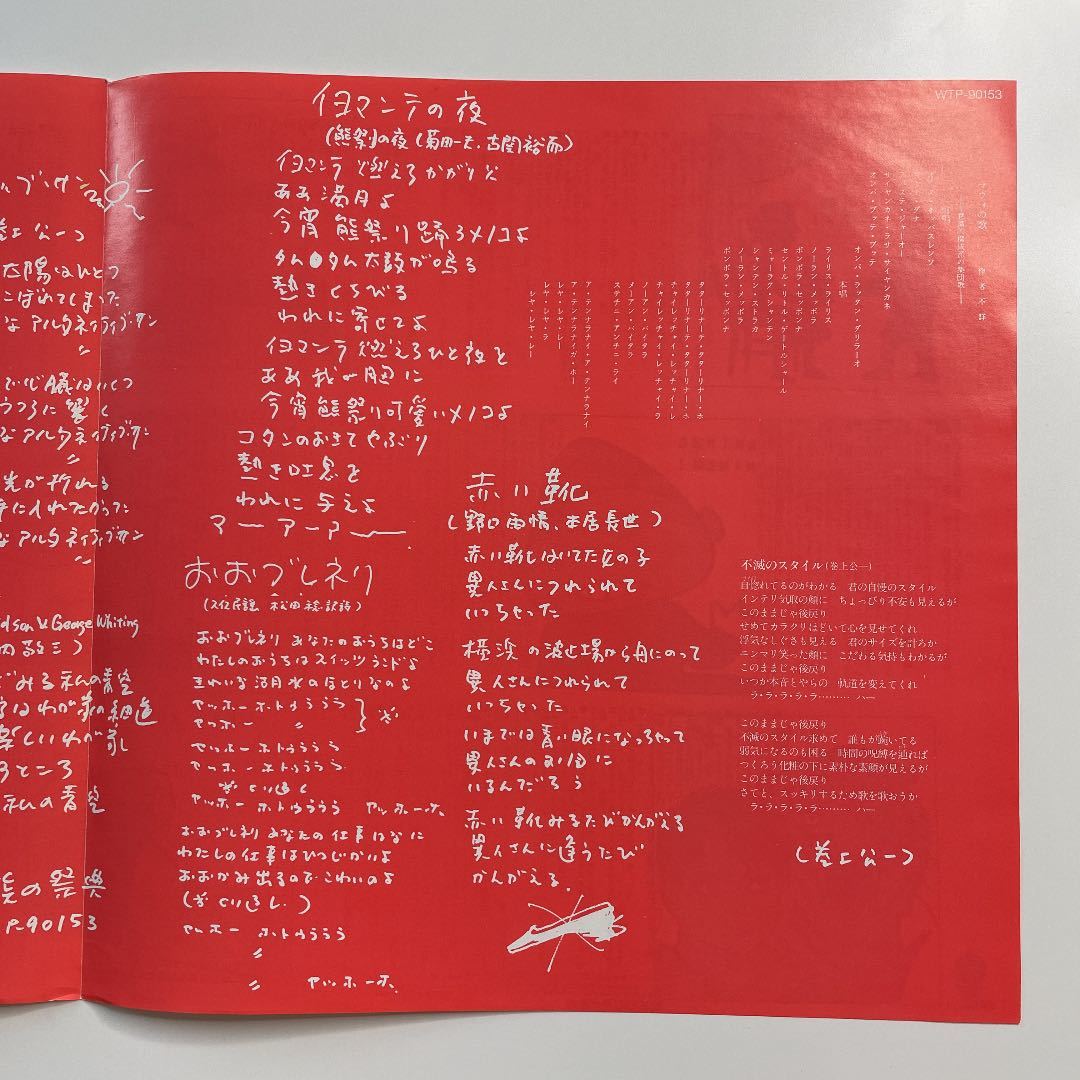 WTP-90153
イヨマンテの夜
(熊祭の夜 (菊田一夫、古関裕而)
イヨマンテ 燃えろかがり火
ああ 満月よ
今宵 熊祭り踊ろメノコよ
タム タム 太鼓が鳴る
熱きくちびる
われに寄せてよ
イヨマンテ 燃えろひと夜を
ああ 我が胸に
今宵熊祭り可愛いメノコよ
コタンのおきてやぶり
熱き吐息を
われに与えよ
アー アーアー
おおブレネリ
(スイス民謡 松田稔・訳詩)
おおブレネリ あなたのおうちはどこ
わたしのおうちはスイッツランドよ
きれいな湖水のほとりなのよ
ヤッホー ホトゥラララ
ヤッホー 〃
ヤッホー ホトゥラララ
ヤッホー ホトゥラララ
※くり返し
ヤッホー ホトゥラララ ヤッホーホ
おおブレネリ あなたの仕事はなに
わたしの仕事はひつじかいよ
おおかみ出るのでこわいのよ
(※くり返し)
ヤッホー ホトゥラララ
〃
〃 ヤッホーホ
赤い靴
(野口雨情、本居長世)
赤い靴はいてた女の子
異人さんにつれられて
いっちゃった
横浜の波止場から舟にのって
異人さんにつれられて
いっちゃった
いまでは青い眼になっちゃって
異人さんのお国に
いるんだろう
赤い靴みるたびかんがえる
異人さんに逢うたび
かんがえる
本唱
ライリス・ライリス
ノーラン・メッボラ
セントル・リトル・ゲートルシャール
ミャーラク・シャンテン
シャンテン・ストラカ
ノーラン・メッボラ
ボンボラ・セッボンナ
タタリナーチ・タタリーナー・ホ
タタリナーテ・タタリーナー・ホ
チャイレッチャイ・レッチャイ・レ
チャイレッチャイ・レッチャイ・ラ
ノーアン・バイタラ
メーアン・バイタラ
ステチニ・アンチニ・ライ
ア・テンナラナイ・ア・テンナウナイ
ア・テンナラナイガ・ホー
レヤ・レヤ・ラ
レヤ・レヤ・レー
レヤ・レヤ・レー
不滅のスタイル(巻上公一)
自惚れてるのがわかる 君の自慢のスタイル
インテリ気取の顔に ちょっぴり不安も見えるが
このままじゃ後戻り
せめてカラクリほどいて心を見せてくれ
浮気なしぐさも見える 君のサイズを計ろか
ニンマリ笑った顔に こだわる気持もわかるが
このままじゃ後戻り
いつか本音とやらの 軌道を変えてくれ
ラ・ラ・ラ・ラ・ラ……… ハー
このままじゃ後戻り
不滅のスタイル求めて 誰もが蠢いてる
弱気になるのも困る 時間の呪縛を辿れば
つくろう化粧の下に素朴な素顔が見えるが
このままじゃ後戻り
さてと、スッキリするため歌を歌おうか
ラ・ラ・ラ・ラ・ラ……… ハー
(巻上公一)
巻上公一
太陽はひとつ
こぼれてしまった
なアルタネイティブサン
〃
で心臓はいくつ
うつろに響く
なアルタネイティブサン
〃
光が折れる
手に入れたかった
なアルタネイティブサン
〃
George Whiting
みる私の青空
わが家の細道
楽しいわが家
るところ
私の青空
の祭典
P-90153